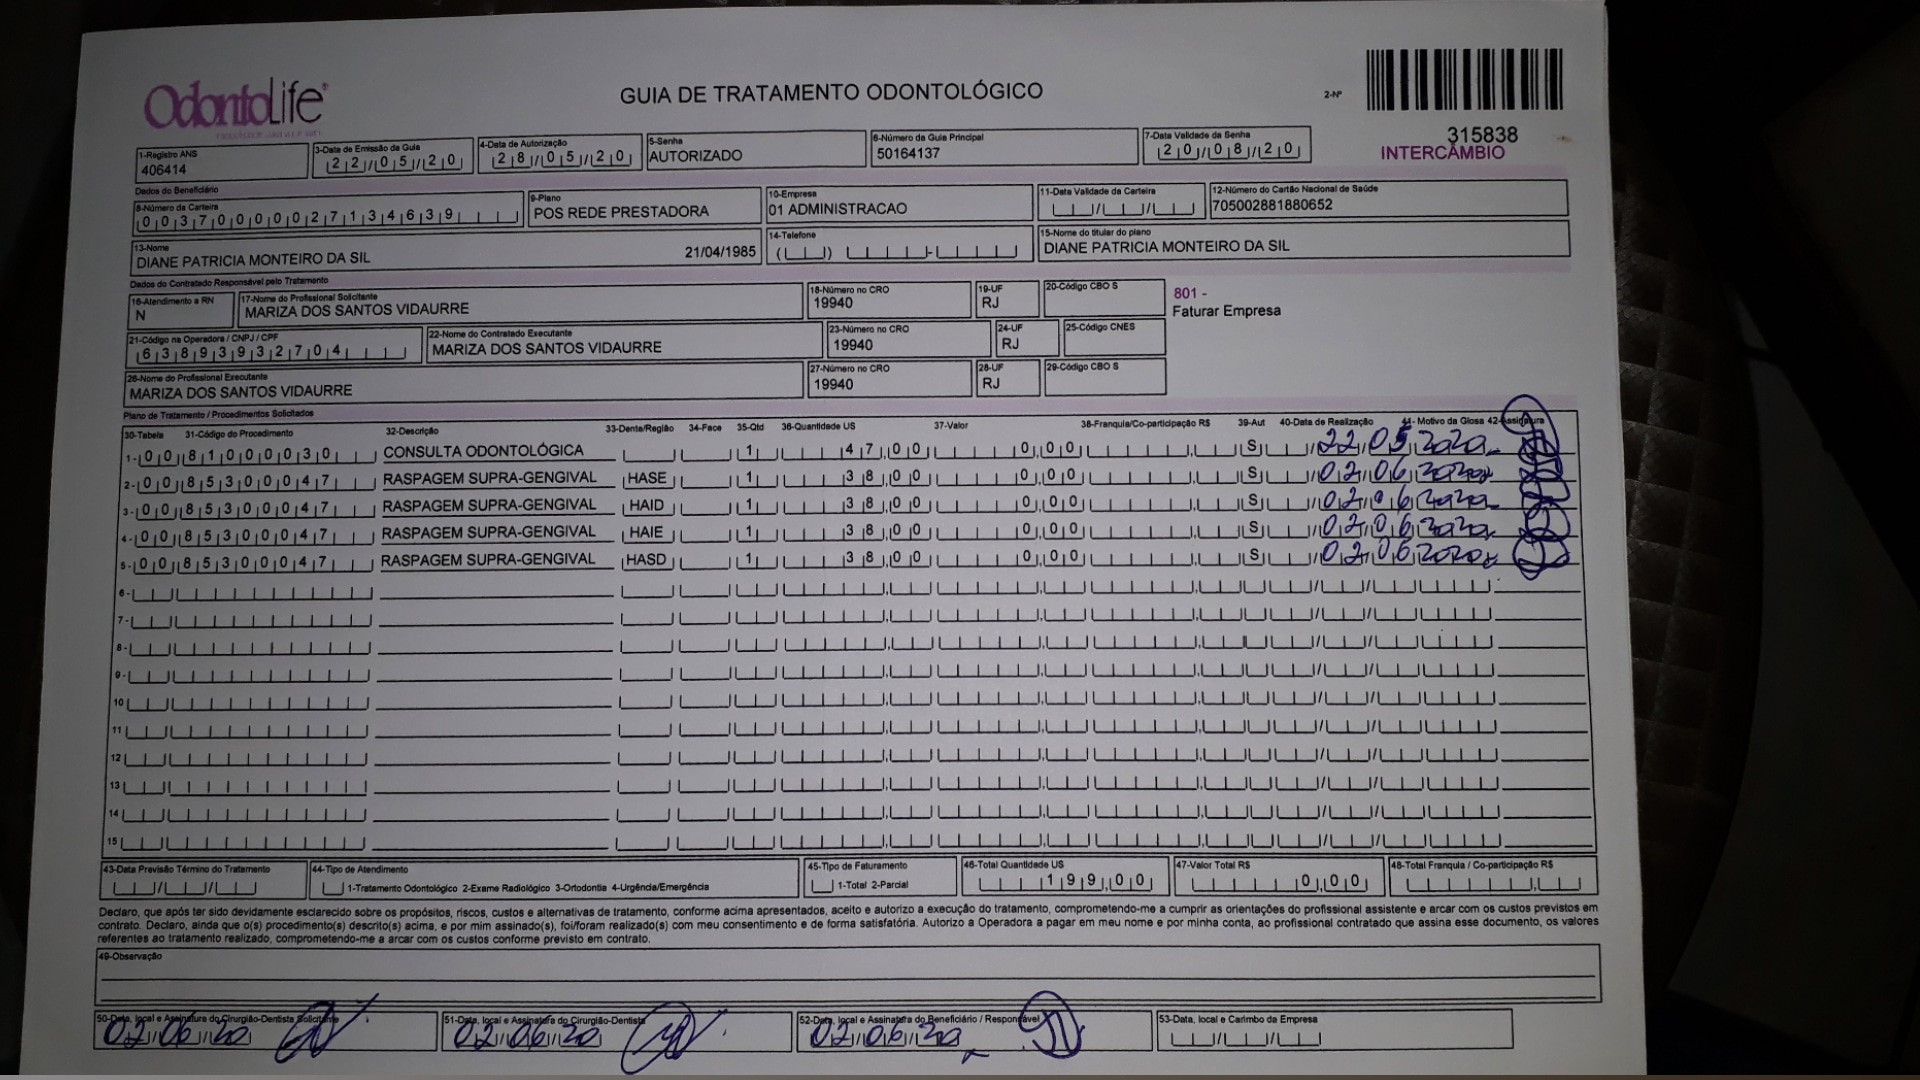 OdontoLife
GUIA DE TRATAMENTO ODONTOLÓGICO
2-Nº
315838
INTERCÂMBIO
1-Registro ANS
406414
3-Data de Emissão da Guia
22/05/20
4-Data de Autorização
28/05/20
5-Senha
AUTORIZADO
6-Número da Guia Principal
50164137
7-Data Validade da Senha
20/08/20
Dados do Beneficiário
8-Número da Carteira
00370000027134639
9-Plano
POS REDE PRESTADORA
10-Empresa
01 ADMINISTRACAO
11-Data Validade da Carteira
12-Número do Cartão Nacional de Saúde
705002881880652
13-Nome
DIANE PATRICIA MONTEIRO DA SIL 21/04/1985
14-Telefone
15-Nome do titular do plano
DIANE PATRICIA MONTEIRO DA SIL
Dados do Contratado Responsável pelo Tratamento
16-Atendimento a RN
N
17-Nome do Profissional Solicitante
MARIZA DOS SANTOS VIDAURRE
18-Número no CRO
19940
19-UF
RJ
20-Código CBO S
801 -
Faturar Empresa
21-Código na Operadora / CNPJ / CPF
63893932704
22-Nome do Contratado Executante
MARIZA DOS SANTOS VIDAURRE
23-Número no CRO
19940
24-UF
RJ
25-Código CNES
26-Nome do Profissional Executante
MARIZA DOS SANTOS VIDAURRE
27-Número no CRO
19940
28-UF
RJ
29-Código CBO S
Plano de Tratamento / Procedimentos Solicitados
30-Tabela 31-Código do Procedimento 32-Descrição 33-Dente/Região 34-Face 35-Qtd 36-Quantidade US 37-Valor 38-Franquia/Co-participação R$ 39-Aut 40-Data de Realização 41- Motivo da Glosa 42-Assinatura
1-00 81000030 CONSULTA ODONTOLÓGICA 1 47,00 0,00 S 22/05/2020
2-00 85300047 RASPAGEM SUPRA-GENGIVAL HASE 1 38,00 0,00 S 02/06/2020
3-00 85300047 RASPAGEM SUPRA-GENGIVAL HAID 1 38,00 0,00 S 02/06/2020
4-00 85300047 RASPAGEM SUPRA-GENGIVAL HAIE 1 38,00 0,00 S 02/06/2020
5-00 85300047 RASPAGEM SUPRA-GENGIVAL HASD 1 38,00 0,00 S 02/06/2020
6-
7-
8-
9-
10
11
12
13
14
15
43-Data Previsão Término do Tratamento
44-Tipo de Atendimento
1-Tratamento Odontológico 2-Exame Radiológico 3-Ortodontia 4-Urgência/Emergência
45-Tipo de Faturamento
1-Total 2-Parcial
46-Total Quantidade US
199,00
47-Valor Total R$
0,00
48-Total Franquia / Co-participação R$
Declaro, que após ter sido devidamente esclarecido sobre os propósitos, riscos, custos e alternativas de tratamento, conforme acima apresentados, aceito e autorizo a execução do tratamento, comprometendo-me a cumprir as orientações do profissional assistente e arcar com os custos previstos em
contrato. Declaro, ainda que o(s) procedimento(s) descrito(s) acima, e por mim assinado(s), foi/foram realizado(s) com meu consentimento e de forma satisfatória. Autorizo a Operadora a pagar em meu nome e por minha conta, ao profissional contratado que assina esse documento, os valores
referentes ao tratamento realizado, comprometendo-me a arcar com os custos conforme previsto em contrato.
49-Observação
50-Data, local e Assinatura do Cirurgião-Dentista Solicitante
02/06/20
51-Data, local e Assinatura do Cirurgião-Dentista
02/06/20
52-Data, local e Assinatura do Beneficiário / Responsável
02/06/20
53-Data, local e Carimbo da Empresa